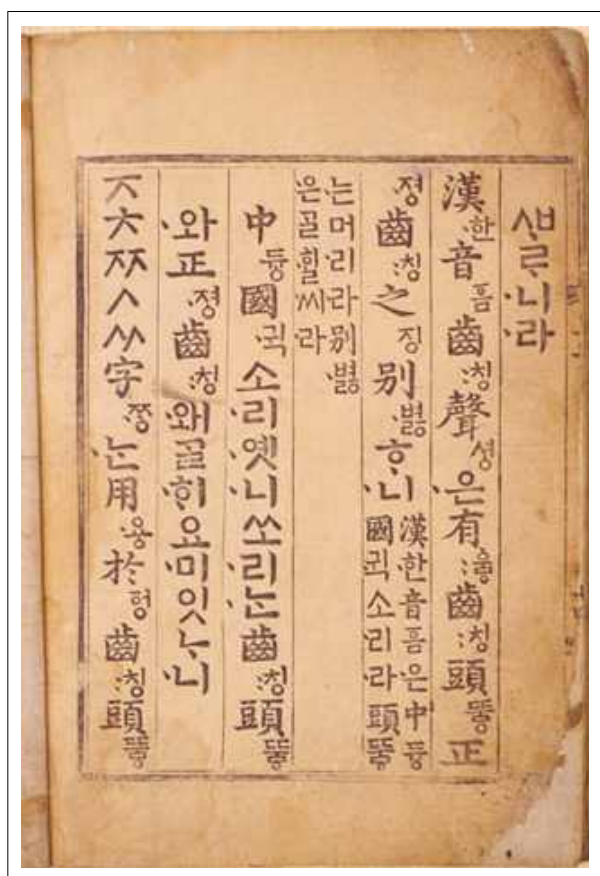 ᄲᆞᄅᆞ·니·라
漢·한音ᅙᅳᆷ齒:칭聲셩·은有:ᅌᅮᇢ齒:칭頭뚜ᇢ正
졍齒:칭之징別·벼ᇙᄒᆞ·니
漢·한音ᅙᅳᆷ·은中듀ᇰ
國·귁소·리·라頭뚜ᇢ
·는머·리·라別·벼ᇙ
·은ᄀᆞᆯᄒᆡᆯ·씨·라
中듀ᇰ國·귁소·리·옛·니쏘·리·ᄂᆞᆫ齒:칭頭뚜ᇢ
·와正·져ᇰ齒:칭·왜ᄀᆞᆯ·ᄒᆡ요·미잇ᄂᆞ·니
ᅎᅔᅏᄼᄽ字·ᄍᆞᆼ·ᄂᆞᆫ用·용於ᅙᅥᆼ齒:칭頭뚜ᇢ